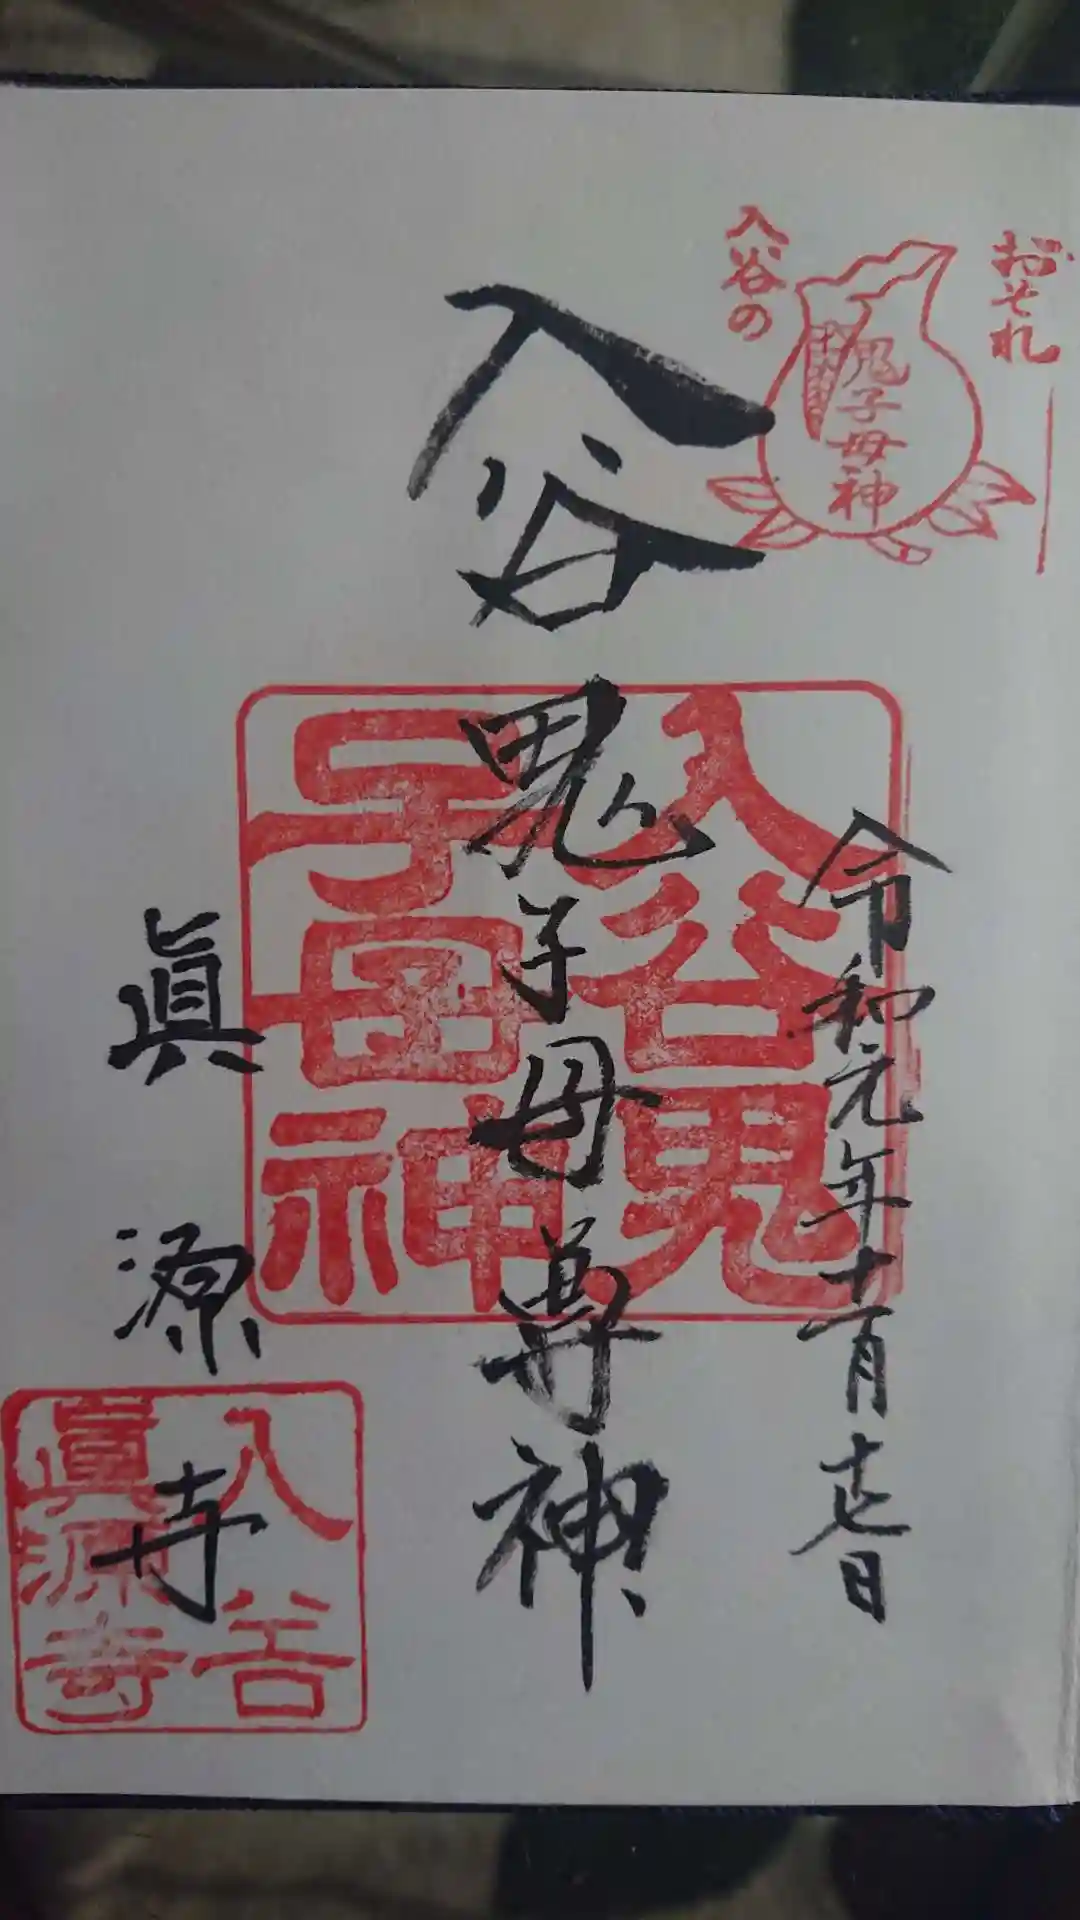 おそれ
入谷の
鬼子母神
令和元年十一月十七日
入谷鬼子母尊神
入谷鬼
子母神
眞源寺
入谷
眞源寺